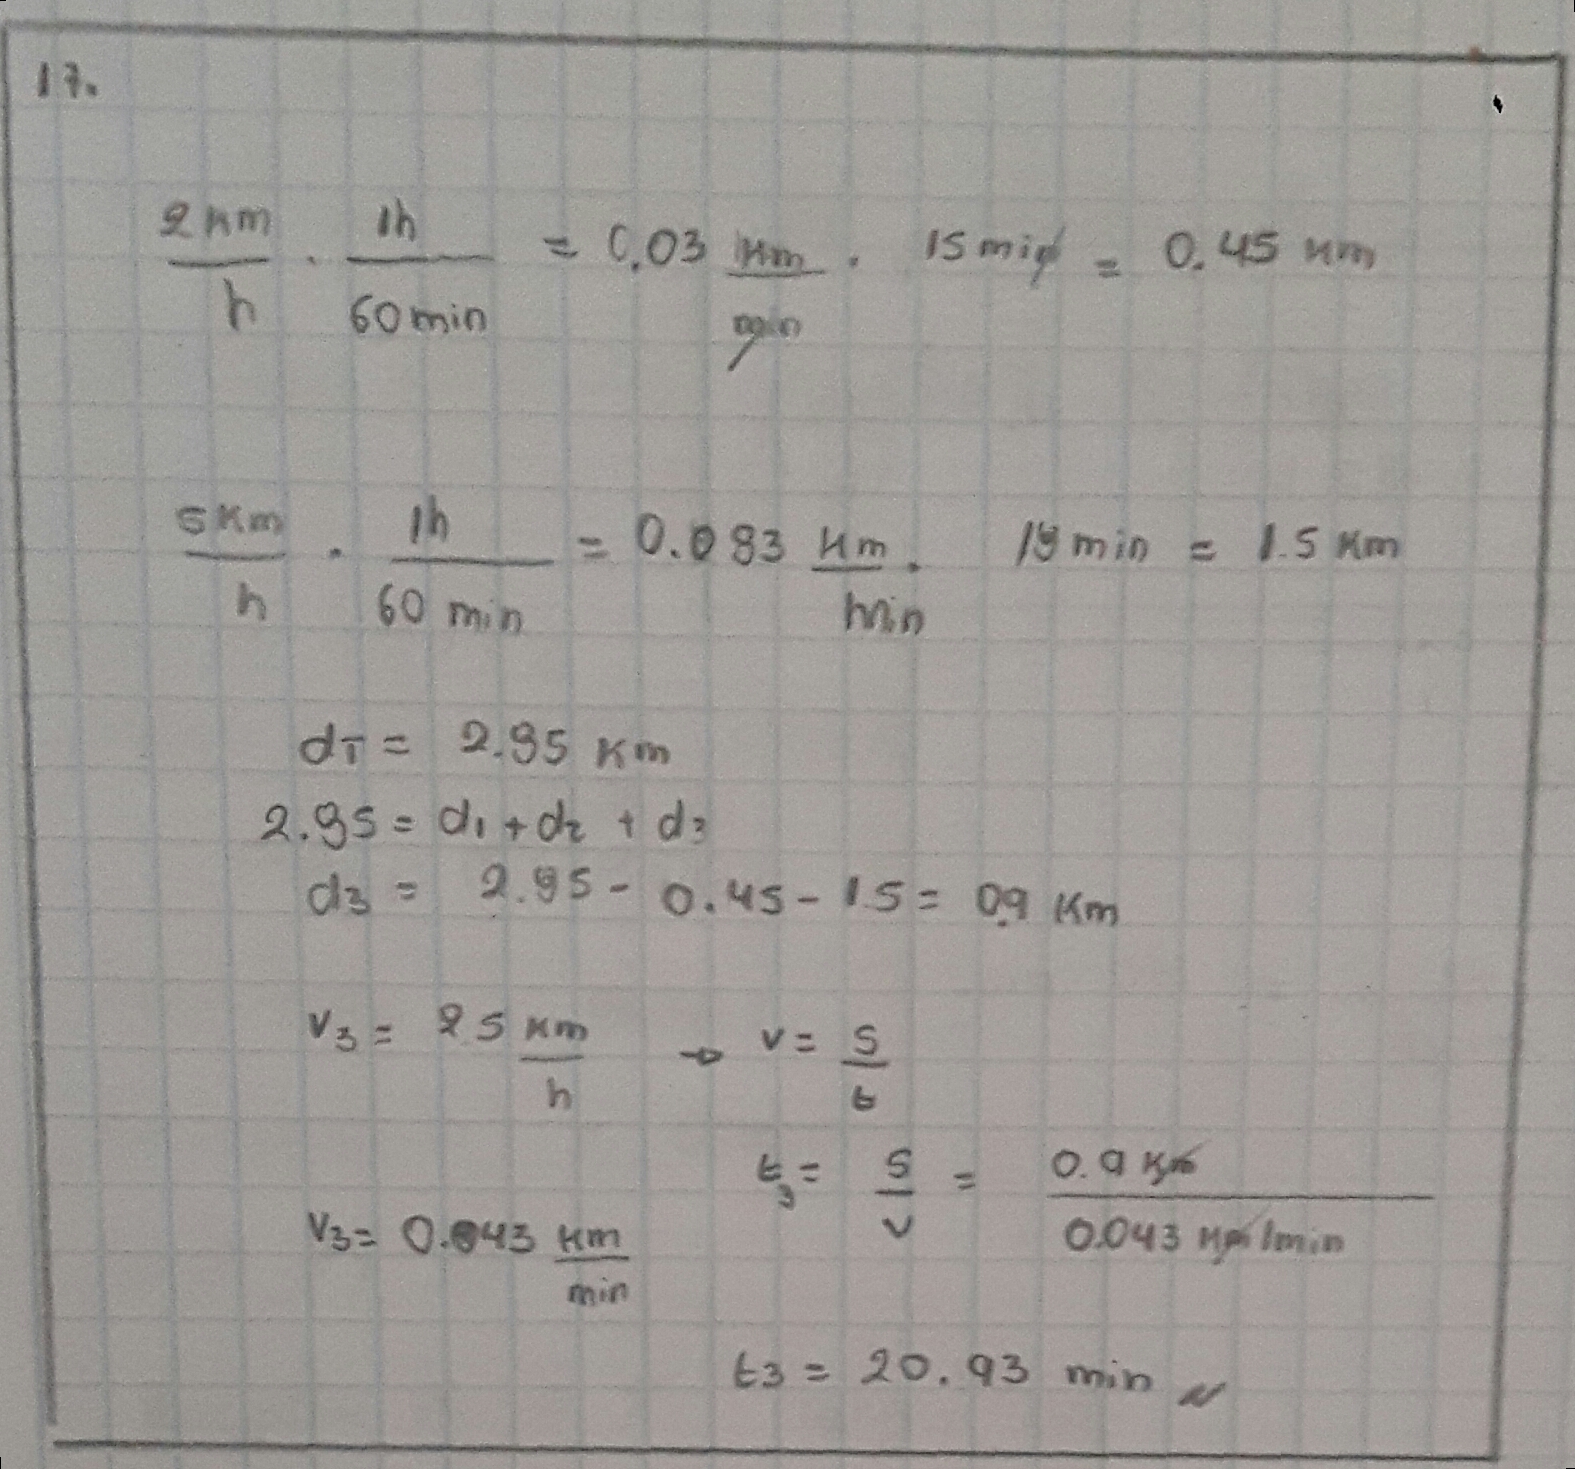 17.
2 km/h · 1h/60 min = 0,03 km/min · 15 min = 0.45 km
5 Km/h · 1h/60 min = 0.083 km/min · 18 min = 1.5 Km
dT = 2.95 Km
2.95 = d1 + d2 + d3
d3 = 2.95 - 0.45 - 1.5 = 0.9 Km
V3 = 25 km/h → v = s/t
t3 = s/v = 0.9 Km/0.043 km/min
V3 = 0.043 km/min
t3 = 20.93 min